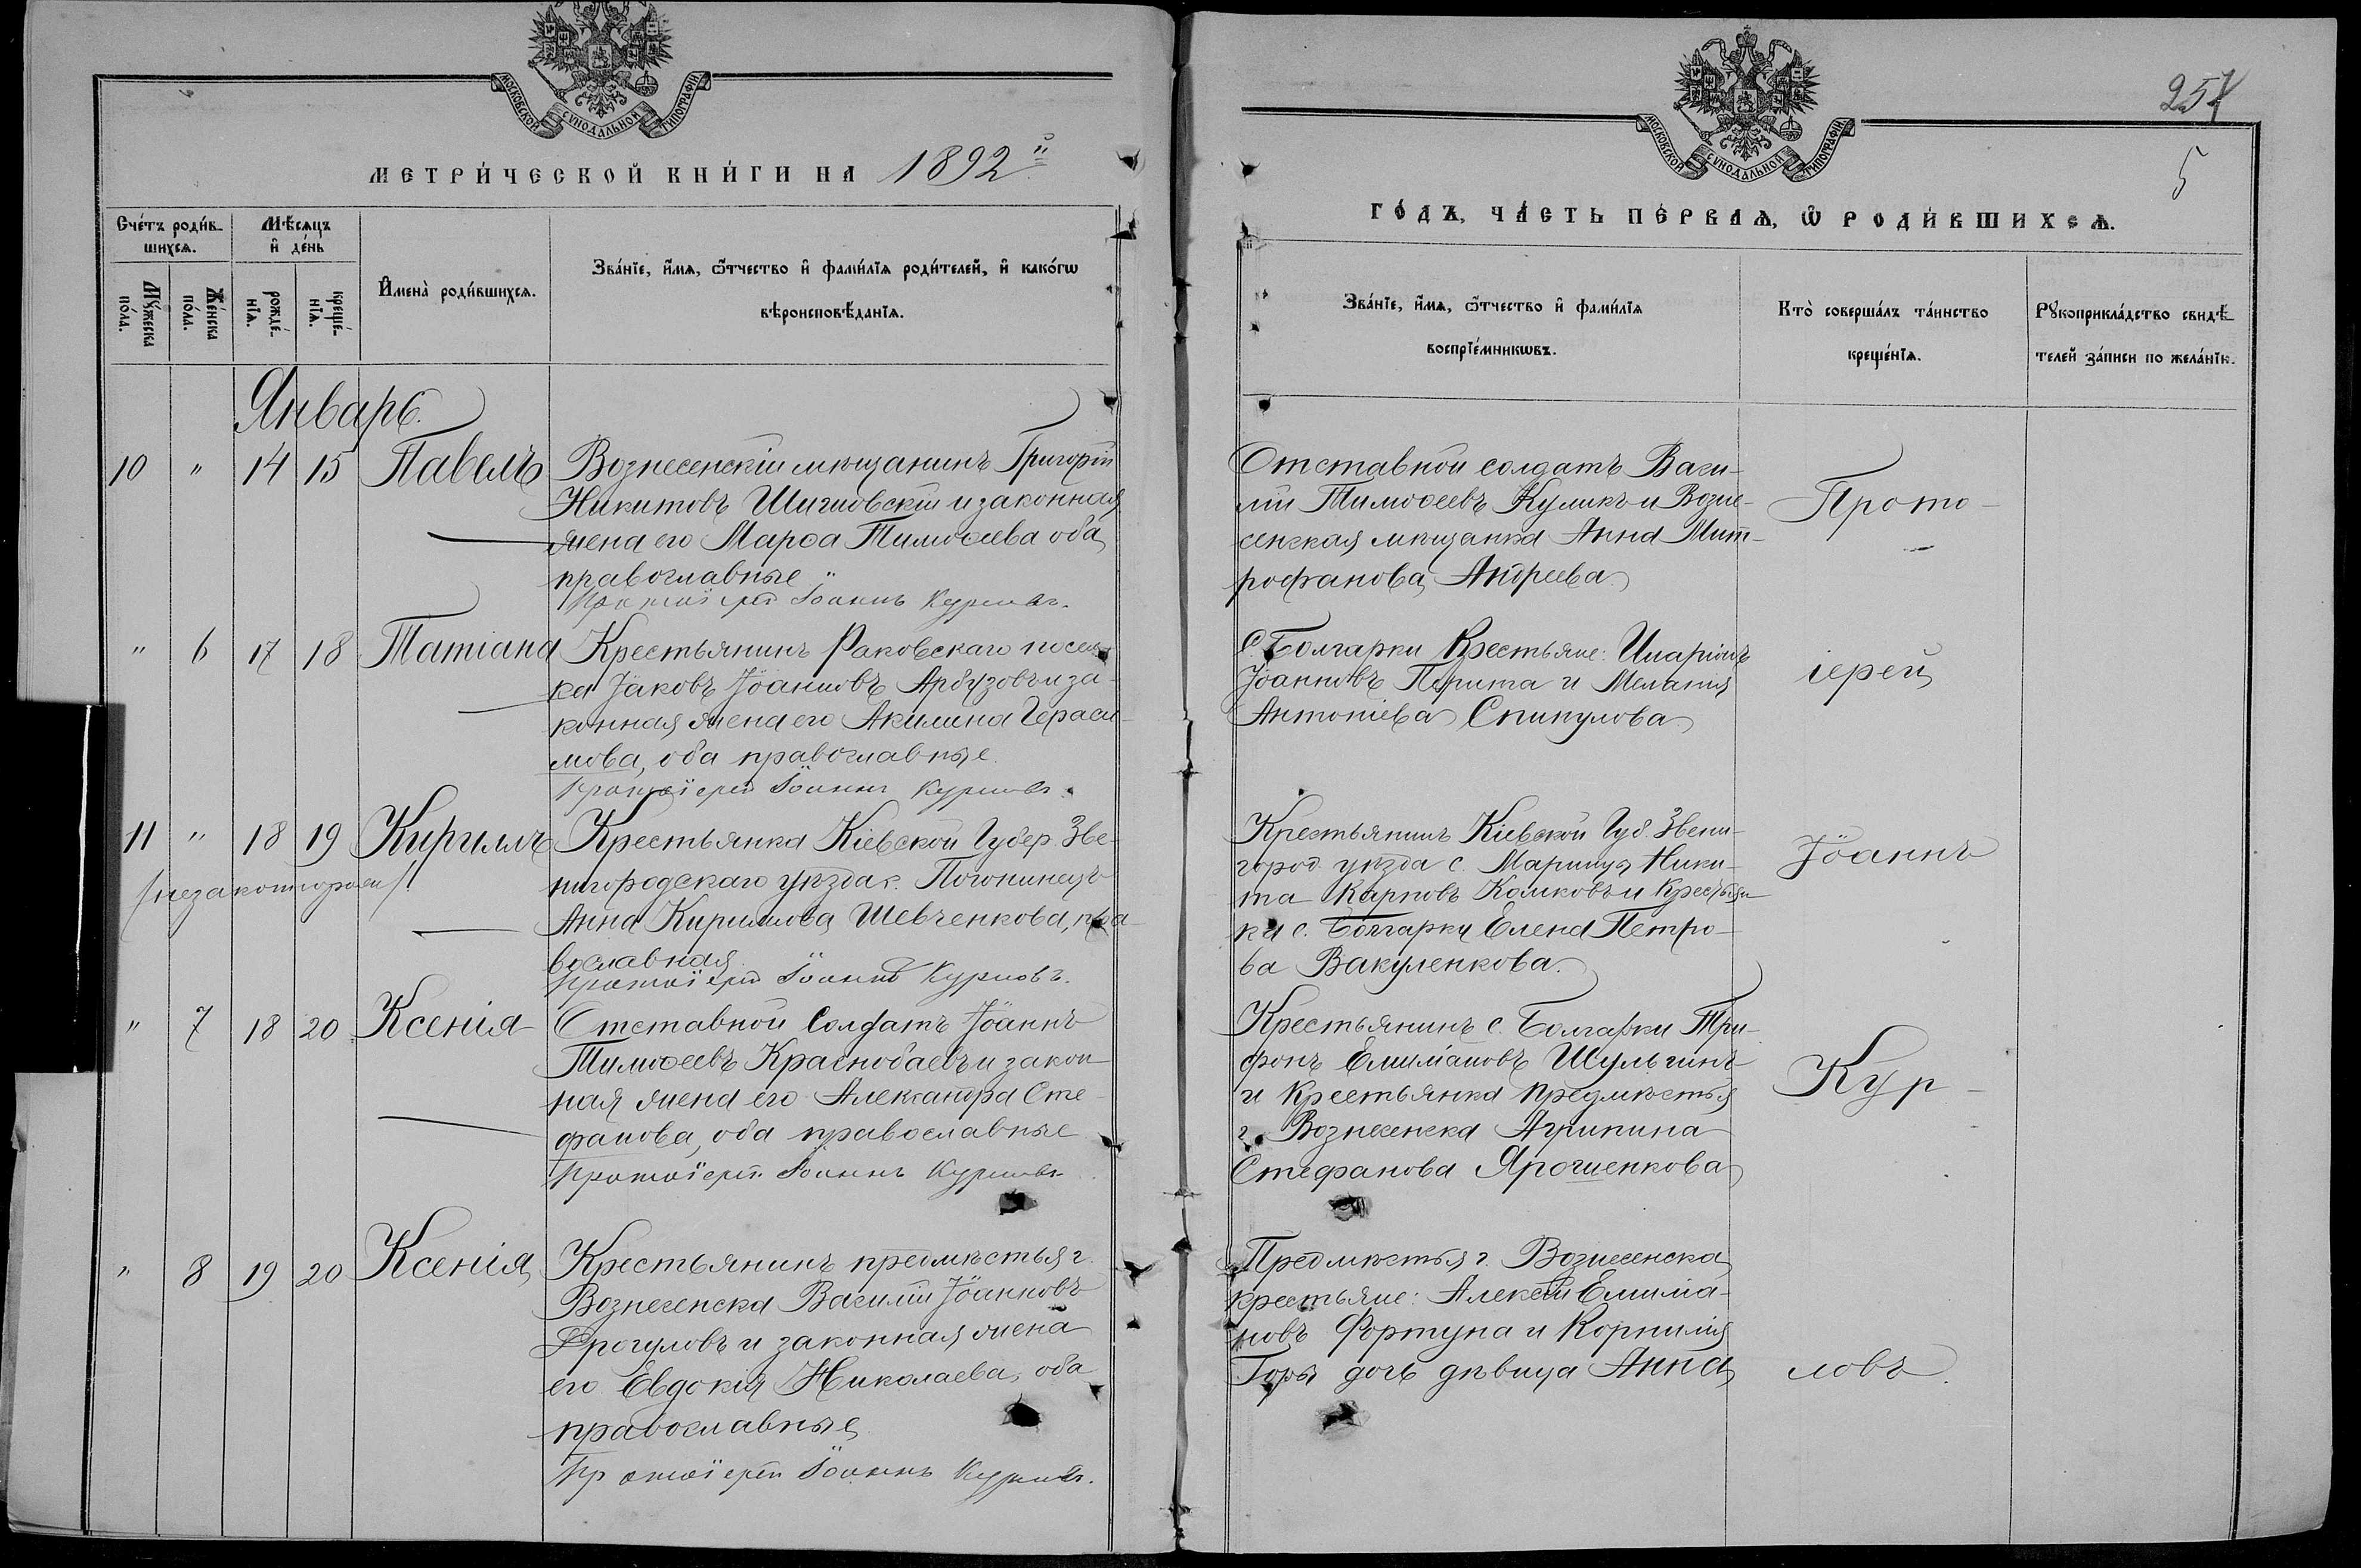 МОСКОВСКОЙ СУНОДАЛЬНОЙ ТИПОГРАФІИ
МЕТРИ́ЧЕСКОЙ КНИ́ГИ НА 1892й
Сче́тъ роди́в-
шихсѧ.
Мѣ́сѧцъ
и҆ де́нь
Мꙋ́жеска
по́ла.
Же́нска
по́ла.
рожде́-
нїѧ.
креще́-
нїѧ.
И҆мена̀ роди́вшихсѧ.
Зва́нїе, и҆́мѧ, ѻ҆́тчество и҆ фами́лїѧ роди́телей, и҆ како́гѡ
вѣроисповѣ́данїѧ.
Январь.
10 " 14 15 Павелъ Вознесенскій мѣщанинъ Григорій
Никитовъ и законная
жена его Марѳа Тимоѳеева оба
православные "
Протоіерей Іоаннъ Курловъ.
" 6 17 18 Татіана Крестьянинъ Раковскаго посел-
ка Іаковъ Іоанновъ Арбузовъ и за-
конная жена его Акилина Гераси-
мова, оба православные.
Протоіерей Іоаннъ Курловъ.
11 " 18 19 Кириллъ Крестьянка Кіевской Губер. Зве-
/незаконнорожд/ нигородскаго уѣзда с.
Анна Кириллова Шевченкова, пра-
вославная
Протоіерей Іоаннъ Курловъ.
" 7 18 20 Ксенія Отставной Солдатъ Іоаннъ
Тимоѳеевъ Краснобаевъ и закон-
ная жена его Александра Сте-
фанова, оба православные
Протоіерей Іоаннъ Курловъ
" 8 19 20 Ксенія Крестьянинъ предмѣстья г.
Вознесенска Василій Іоанновъ
и законная жена
его Евдокія Николаева, оба
православные
Протоіерей Іоаннъ Курловъ.
257
5
МОСКОВСКОЙ СУНОДАЛЬНОЙ ТИПОГРАФІИ
ГО́ДЪ, ЧА́СТЬ ПЕ́РВАѦ, Ѡ҆ РОДИ́ВШИХСѦ.
Зва́нїе, и҆́мѧ, ѻ҆́тчество и҆ фами́лїѧ
воспрїе́мникѡвъ.
Кто̀ соверша́лъ та́инство
креще́нїѧ.
Рꙋкоприкла́дство свидѣ́-
телей за́писи по жела́нїю.
Отставной солдатъ Васи-
лій Тимоѳеевъ Куликъ и Возне-
сенская мѣщанка Анна Мит-
рофанова Андреева
С. Болгарки Крестьяне: Иларіонъ
Іоанновъ и Меланія
Антоніева
Крестьянинъ Кіевской Губ. Звени-
город. уѣзда с. Ники-
та Карповъ и Крестьян-
ки с. Болгарки Елена Петро-
ва Вакуленкова.
Крестьянинъ с. Болгарки Три-
фонъ Емиліановъ Шульгинъ
и Крестьянка предмѣстья
г. Вознесенска Агрипина
Стефанова Ярошенкова
Предмѣстья г. Вознесенска
крестьяне: Алексій Емилія-
новъ Фортуна и Корнилія
дочь дѣвица Анна
Прото-
іерей
Іоаннъ
Кур-
ловъ.